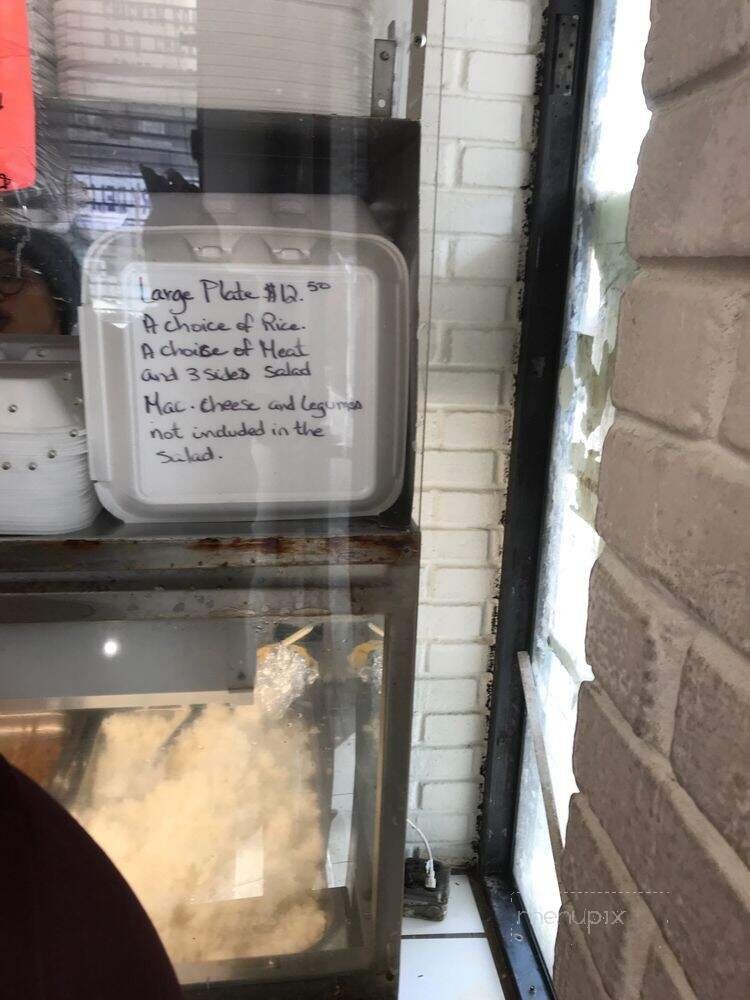 Large Plate $12.50
A choice of Rice.
A choise of Meat
and 3 sides salad
Mac. cheese and legumes
not included in the
Salad.
menupix